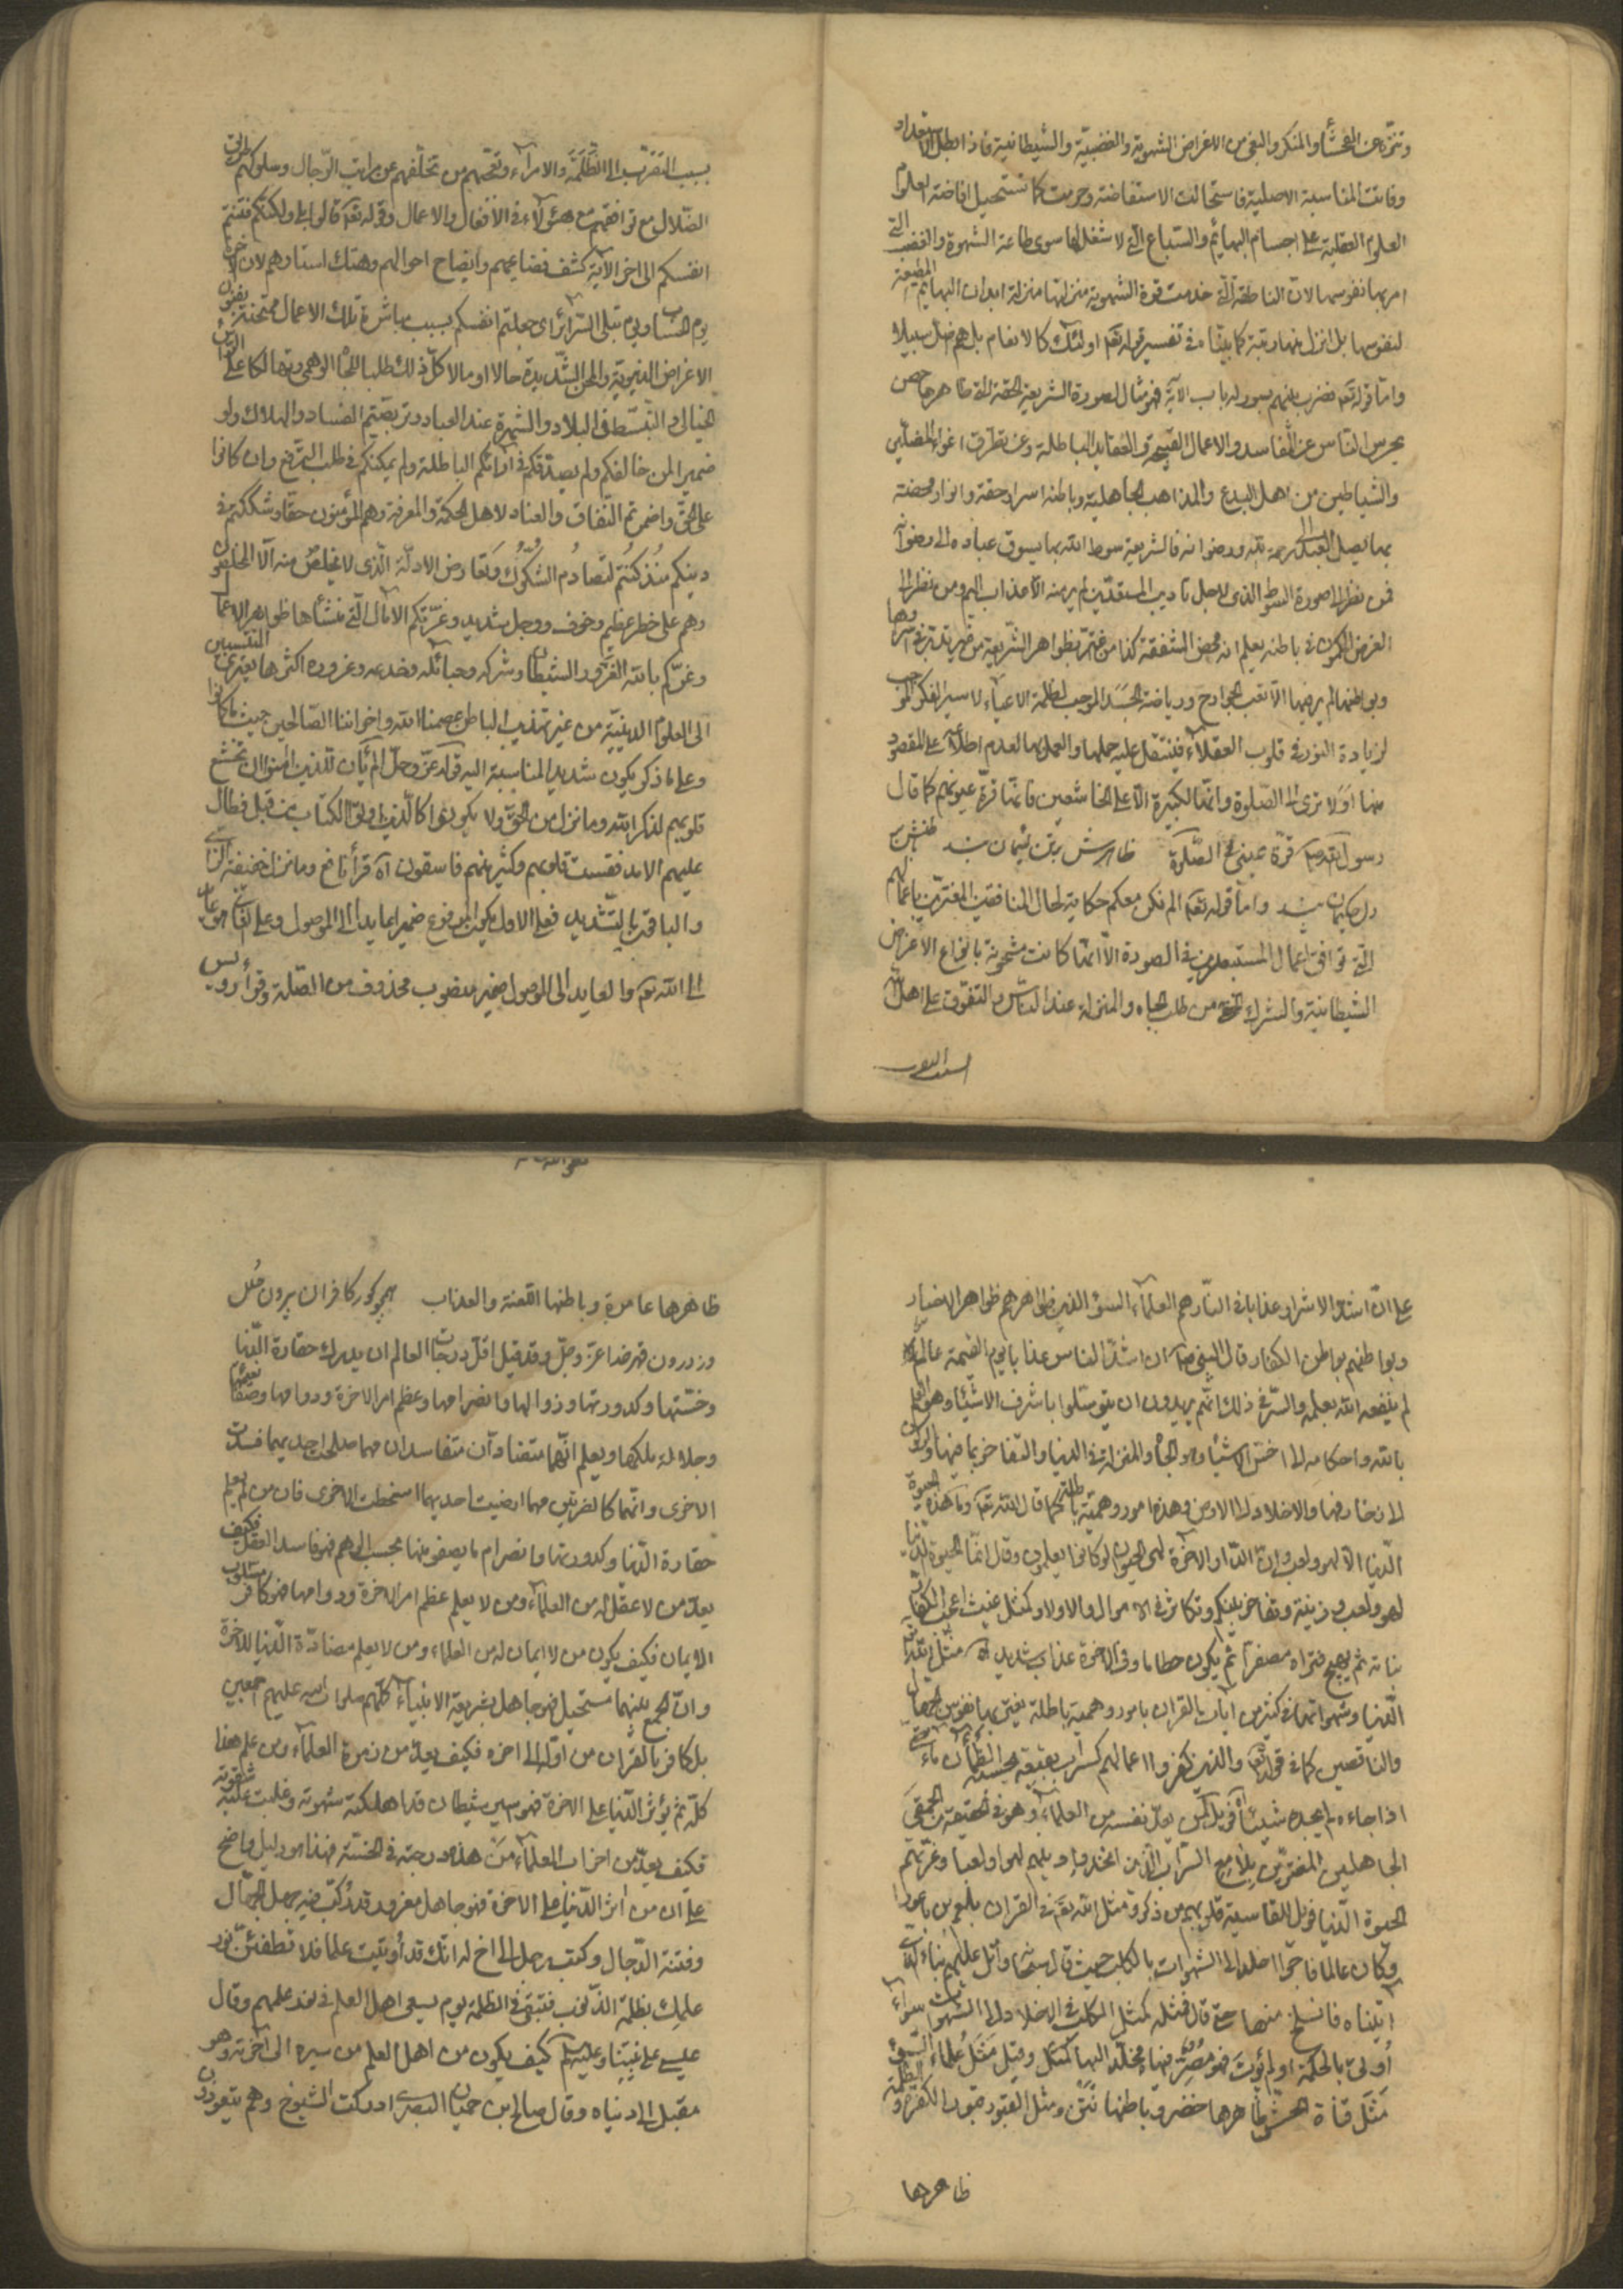 وتنزه عن الفحشاء والمنكر والبغى من الاغراض الشهوية والغضبية والشيطانية فاذا بطل الاستعداد
وفاتت المناسبة الاصلية فاستحالت الاستفاضة وحرمت كما تستحيل افاضة العلوم
العلوم العقلية على اجسام البهائم والسباع التى لا شغل لها سوى طاعة الشهوة والغضب التى
امر بها نفوسها لان الناطقة التى خدمت قوة الشهوية منزلتها منزلة ابدان البهائم المطيعة
لنفوسها بل انزل منها رتبة كما بيناه فى تفسير قوله تعه اولئك كالانعام بل هم اضل سبيلا
واما قوله تعه فضرب بينهم بسور له باب الاية فهو مثال لصورة الشريعة الحقة التى ظاهرها حصن
يحرس الناس عن المفاسد والاعمال القبيحة والعقايد الباطلة وعن تطرق اغواء المضلين
والشياطين من اهل البدع والمذاهب الجاهلية وباطنه اسرار حقة وانوار محضة
بها يصل العبد الى رحمة الله ورضوانه فالشريعة سوط الله بها يسوق عباده الى رضوانه
فمن نظر الى صورة السوط الذى لاجل تاديب المستعدين لم ير منه الا عذاب اليم ومن نظر الى
الغرض المكمون فى باطنه يعلم انه محض الشفقة كذا من اغتر بظواهر الشريعة من غير تدبر فى اسرارها
وبواطنها لم ير فيها الا تعب الجوارح ورياضة الجسد الموجب لظلمة الاعياء لا سير الفكر الموجب
لزيادة النور فى قلوب العقلاء فيثقل عليه حملها والعمل بها لعدم اطلاعه على المقصود
منها اولا ترى الى الصلوة وانها لكبيرة الا على الخاشعين فانها قرة عيونهم كما قال
رسول الله ص قرة عينى فى الصلوة ظاهرش
واما قوله تعه الم نكن معكم حكاية لحال المنافقين المغترين باعمالهم
التى توافق اعمال المستبصرين فى الصورة الا انها كانت مشحونة بانواع الاغراض
الشيطانية والشرك الخفى من طلب الجاه والمنزلة عند الناس والتفوق على اهل الله
بسبب التقرب الى الظلمة والامراء وتعجبهم من تخلفهم عن مراتب الرجال وسلوكهم طريق
الضلال مع توافقهم مع هؤلاء فى الافعال والاعمال وقوله تعه قالوا بلى ولكنكم فتنتم
انفسكم الى اخر الاية كشف فضايحهم وايضاح احوالهم وهتك استارهم لان
يوم الحساب ويوم تبلى السرائر اى جعلتم انفسكم بسبب مباشرة تلك الاعمال ممتحنة بفنون
الاغراض الدنيوية والمحن الشديدة حالا او مالا كل ذلك طلبا للجاه الوهمى وتهالكا على
الخيالى والتبسط فى البلاد والشهرة عند العباد وتربصتم الفساد والهلاك
لمن خالفكم ولم يصدقكم فى ارائكم الباطلة ولم يمكنكم فى طلب الترفع وان كانوا
على الحق واضمرتم النفاق والعناد لاهل الحكمة والمعرفة وهم المؤمنون حقا وشككتم فى
دينكم منذ كنتم لتصادم الشكوك وتعارض الادلة الذى لا يخلص منه الا المخلصون
وهم على خطر عظيم وخوف ووجل شديد وغرتكم الامال التى منشأها ظواهر الاعمال
وغركم بالله الغرور الشيطان وشركه وحبائله وخدعه وغروره اكثرها يعترى المنتسبين
الى العلوم الدينية من غير تهذيب الباطن عصمنا الله واخواننا الصالحين حيث ما كانوا
وعلى ما ذكر يكون شديد المناسبة اليه قوله عز وجل الم يأن للذين امنوا ان تخشع
قلوبهم لذكر الله وما نزل من الحق ولا يكونوا كالذين اوتوا الكتاب من قبل فطال
عليهم الامد فقست قلوبهم وكثير منهم فاسقون اه قرأ نافع وما نزل خفيفة الزاى
والباقون بالتشديد فعلى الاول يكون المرفوع ضميرا عايدا الى الموصول وعلى الثانى هو عايد
الى الله تعه والعايد الى الموصول ضمير منصوب محذوف من الصلة وقرأ رويس
على ان اشد الاشرار عذابا فى النار هم العلماء السوء الذين ظواهرهم ظواهر الاخيار
وبواطنهم بواطن الكفار قال النبى ص ان اشد الناس عذابا يوم القيمة عالم
لم ينفعه الله بعلمه والسر فى ذلك انهم يريدون ان يتوسلوا باشرف الاشياء وهو العلم
بالله واحكامه الى اخس الاشياء وهو الجاه والمنزلة فى الدنيا والتفاخر بما فيها والركون
الى زخارفها والاخلاد الى الارض وهذه امور وهمية باطلة كما قال الله تعه وما هذه الحيوة
الدنيا الا لهو ولعب وان الدار الاخرة لهى الحيوان لو كانوا يعلمون وقال انما الحيوة الدنيا
لهو ولعب وزينة وتفاخر بينكم وتكاثر فى الاموال والاولاد كمثل غيث اعجب الكفار
نباته ثم يهيج فتراه مصفرا ثم يكون حطاما وفى الاخرة عذاب شديد اه مثل الله
الدنيا وشهواتها فى كثير من ايات القران بامور وهمية باطلة يغتر بها نفوس الجهال
والناقصين كما فى قوله تعه والذين كفروا اعمالهم كسراب بقيعة يحسبه الظمأن ماء حتى
اذا جاءه لم يجده شيئا فويل لمن يعد نفسه من العلماء وهو فى الحقيقة من الحمقى
الجاهلين المغترين بلامع السراب الذين اتخذوا دينهم لهوا ولعبا وغرتهم
الحيوة الدنيا فويل للقاسية قلوبهم من ذكر الله ومثل الله تعه فى القران بلعم بن باعورا
وكان عالما فاجرا اخلد الى الشهوات بالكلب حيث قال سبحانه واتل عليهم نباء الذى
اتيناه اياتنا فانسلخ منها حتى قال فمثله كمثل الكلب فى الاخلاد الى الشهوات سواء
اوتى بالحكمة او لم يؤت فهو مصر وقيل مثل علماء السوء
مثل قناة الحش ظاهرها خضر وباطنها نتن ومثل القبور قبور الكفرة والظلمة
ظاهرها
ظاهرها عامرة وباطنها اللعنة والعذاب همچو گور كافران بيرون حلل
وز درون قهر خدا عز وجل وقد قيل اقل درجات العالم ان يدرك حقارة الدنيا
وخستها وكدورتها وزوالها وانصرامها وعظم امر الاخرة ودوامها وصفاء نعيمها
وجلالة ملكها ويعلم انهما متضادان متفاسدان مهما صلحت احديهما فسدت
الاخرى وانهما كالضرتين مهما ارضيت احديهما اسخطت الاخرى فان من لم يعلم
حقارة الدنيا وكدورتها وانصرام ما يصفو منها بحسب الوهم فهو فاسد العقل فكيف
يعد من لا عقل له من العلماء ومن لا يعلم عظم امر الاخرة ودوامها فهو كافر مسلوب
الايمان فكيف يكون من لا ايمان له من العلماء ومن لا يعلم مضادة الدنيا للاخرة
وان الجمع بينهما مستحيل فهو جاهل بشريعة الانبياء كلهم صلوات الله عليهم اجمعين
بل كافر بالقران من اوله الى اخره فكيف يعد من زمرة العلماء ومن علم هذا
كله ثم يؤثر الدنيا على الاخرة فهو اسير شيطان قد اهلكته شهوته وغلبت عليه شقوته
فكيف يعد من احزاب العلماء من هذه درجته فى الخسة فهذا هو دليل واضح
على ان من اثر الدنيا على الاخرة فهو جاهل مغرور قد ركب فيه جهل الجهال
وفتنة الدجال وكتب رجل الى اخ له انك قد أوتيت علما فلا تطفئن نور
علمك بظلمة الذنوب فتبقى فى الظلمة يوم يسعى اهل العلم فى نور علمهم وقال
عيسى على نبينا وعليه السلم كيف يكون من اهل العلم من سيره الى اخرته وهو
مقبل الى دنياه وقال صالح بن حسان البصرى ادركت الشيوخ وهم يتعوذون